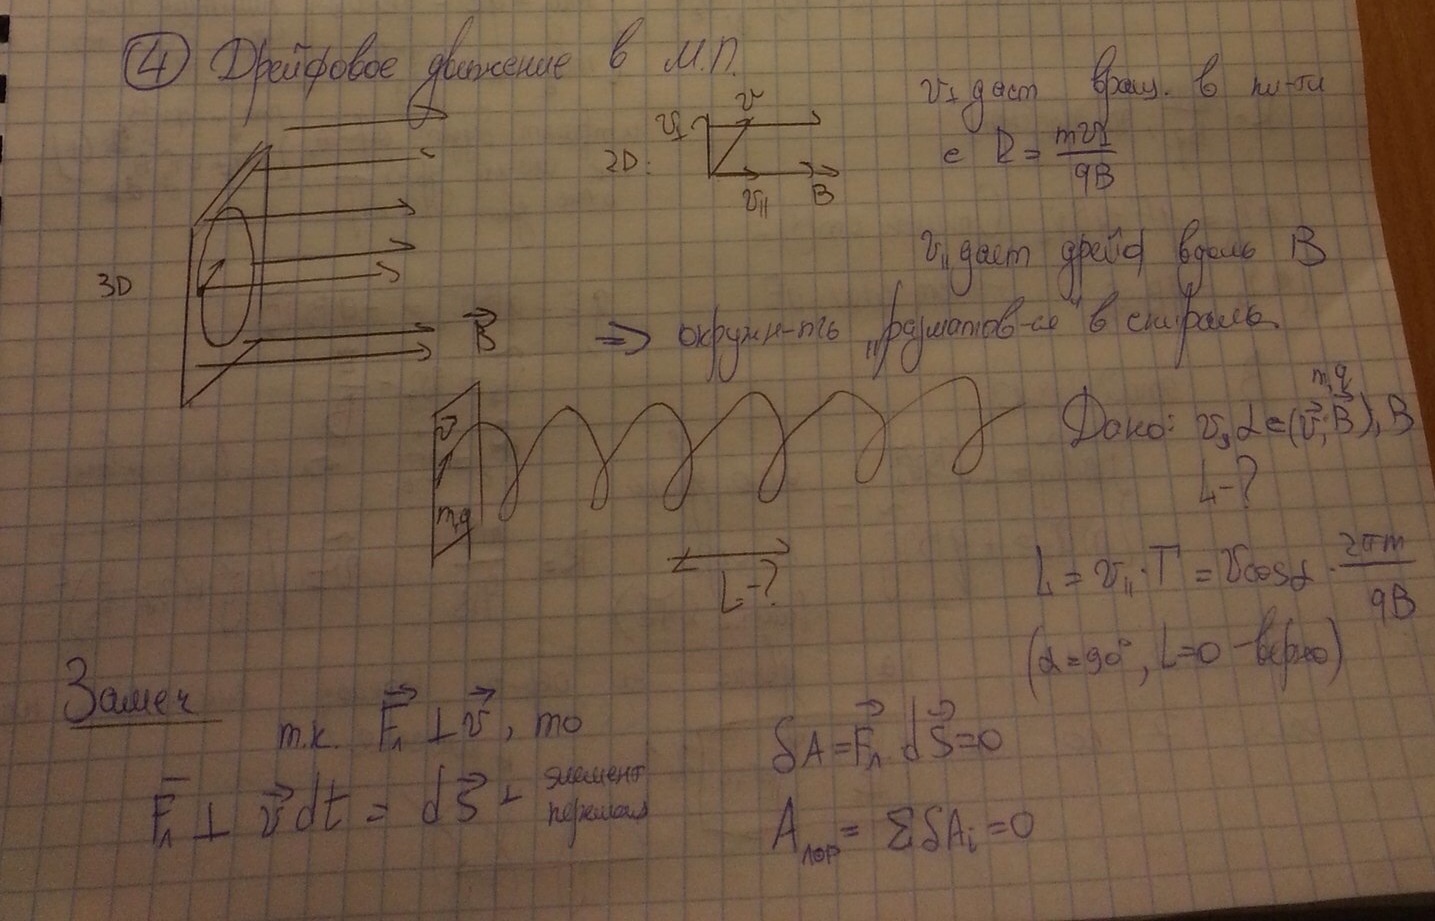 ④ Дрейфовое движение в М.П.
v⊥ дает вращ. в пл-ти
с R = mv⊥/qB
2D:
v⊥
v
v||
B
3D
B⃗
v|| дает дрейф вдоль B
=> окружн-ть „разматыв-ся" в спираль.
v⃗
m,q
L-?
Дано: v, α=(v⃗;B⃗), B
m,q
L-?
L = v||·T = vcosα · 2πm/qB
(α=90°, L=0 - верно)
Замеч
т.к. F⃗л ⊥ v⃗, то
F̄л ⊥ v⃗dt = dS⃗ - элемент
перемещ
δA = F⃗л dS⃗ = 0
Aлор = ΣδAi = 0